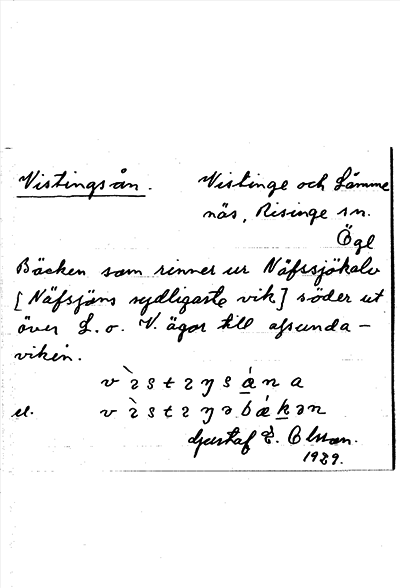 Vistingsån. Vistinge och Lämme
näs, Risinge sn.
Ögl
Bäcken som rinner ur Näfssjökalv
[Näfsjöns sydligaste vik] söder ut
över L. o. V. ägor till
viken.
el.
Gustaf E. Olsson.
1929.